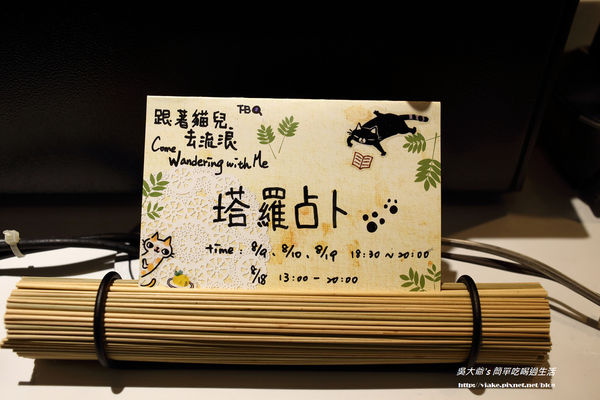 跟著貓兒
去流浪
Come
Wandering with Me
塔羅占卜
time : 8/9、8/10、8/19 18:30~20:00
8/18 13:00-20:00
吳大爺's 簡單吃喝過生活
http://viake.pixnet.net/blog